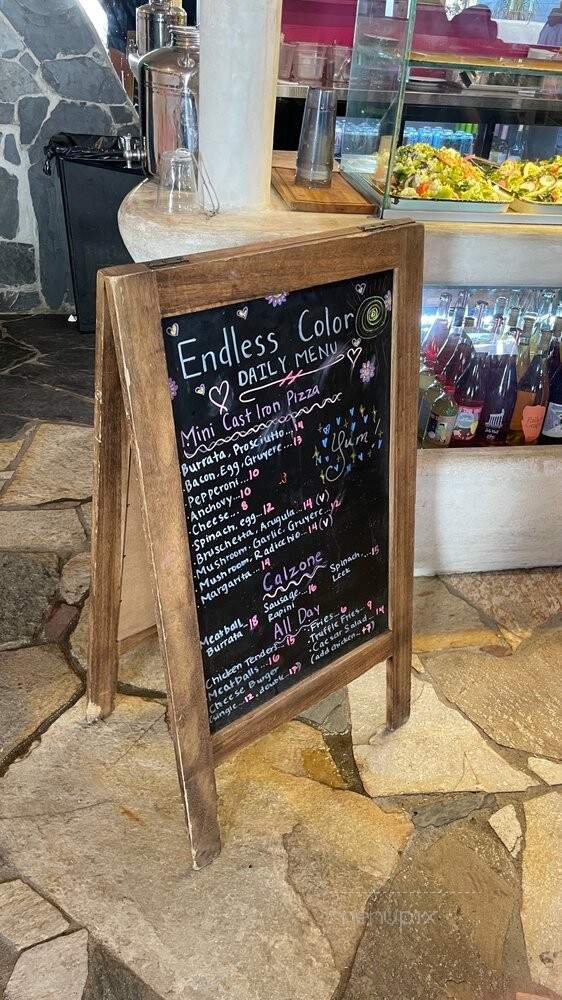 Endless Color
DAILY MENU
Mini Cast Iron Pizza
Burrata, Prosciutto...14
.Bacon, Egg, Gruyere...13
Pepperoni...10
Anchovy...10
Cheese...8
.Spinach, egg...12
.Bruschetta, Arugula...14 (v)
.Mushroom, Garlic, Gruyere...12
Mushroom, Radicchio...14 (v)
Margarita...14
Yum
Calzone
Meatball, Burrata 18
Sausage, Rapini 16
Spinach, Leek 15
All Day
Chicken Tenders...15
Meatballs...16
Cheese Burger
(single...12, double...17)
.Fries...6
.Truffle Fries...9
.Caesar Salad...14
(add chicken...+7)
menupix